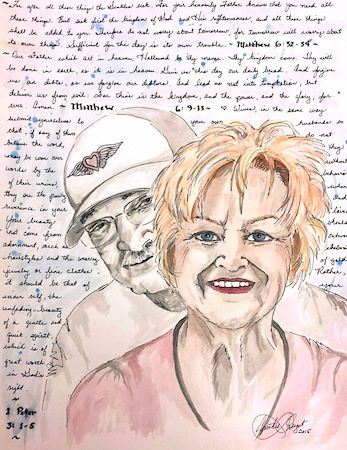 ~ For you all these things the Gentiles seek. For your heavenly Father knows that you need all
these things. But seek first the kingdom of God and His righteousness, and all these things
shall be added to you. Therefore do not worry about tomorrow, for tomorrow will worry about
its own things. Sufficient for the day is its own trouble. ~ Matthew 6:32-34 ~
Our Father which art in heaven, Hallowed be thy name. Thy kingdom come. Thy will
be done in earth, as it is in heaven. Give us this day our daily bread. And forgive
us our debts, as we forgive our debtors. And lead us not into temptation, but
deliver us from evil: For thine is the kingdom, and the power, and the glory, for
ever. Amen. ~ Matthew 6:9-13 ~ Wives, in the same way
submit yourselves to your own husbands so
that, if any of them do not
believe the word, they
may be won over without
words by the behavior
of their wives, when
they see the purity and
reverence in your
Your beauty should
not come from outward
adornment, such as
hairstyles and the wearing of gold
jewelry or fine clothes. Rather,
it should be that of your
inner self, the
unfading beauty
of a gentle and
quiet spirit,
which is of
great worth
in God's
sight.
~
1 Peter
3:1-5
~
2015